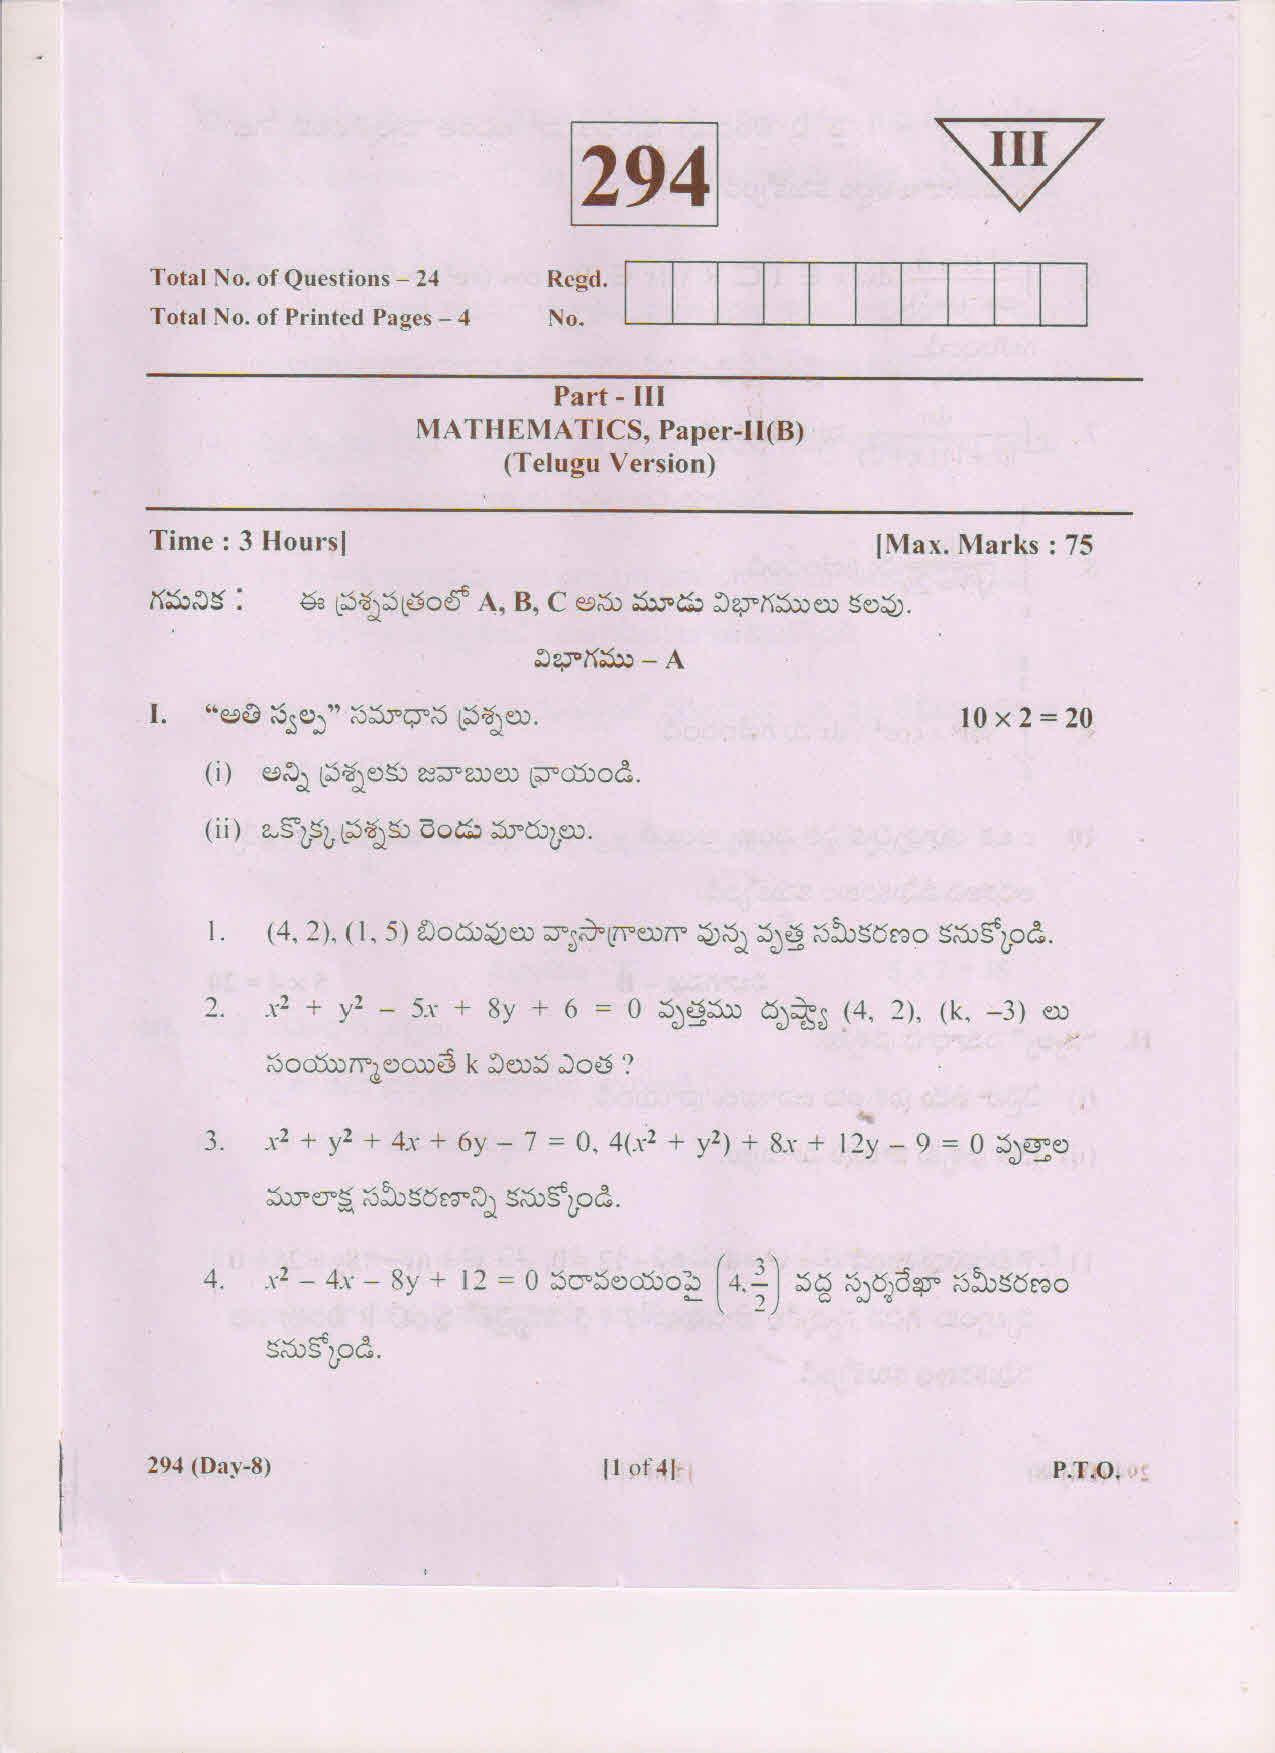 294
III
Total No. of Questions – 24 Regd.
Total No. of Printed Pages – 4 No.
Part - III
MATHEMATICS, Paper-II(B)
(Telugu Version)
Time : 3 Hours] [Max. Marks : 75
గమనిక : ఈ ప్రశ్నపత్రంలో A, B, C అను మూడు విభాగములు కలవు.
విభాగము – A
I. “అతి స్వల్ప” సమాధాన ప్రశ్నలు. 10 × 2 = 20
(i) అన్ని ప్రశ్నలకు జవాబులు వ్రాయండి.
(ii) ఒక్కొక్క ప్రశ్నకు రెండు మార్కులు.
1. (4, 2), (1, 5) బిందువులు వ్యాసాగ్రాలుగా వున్న వృత్త సమీకరణం కనుక్కోండి.
2. x² + y² – 5x + 8y + 6 = 0 వృత్తము దృష్ట్యా (4, 2), (k, –3) లు
సంయుగ్మాలయితే k విలువ ఎంత ?
3. x² + y² + 4x + 6y – 7 = 0, 4(x² + y²) + 8x + 12y – 9 = 0 వృత్తాల
మూలాక్ష సమీకరణాన్ని కనుక్కోండి.
4. x² – 4x – 8y + 12 = 0 పరావలయంపై (4, 3/2) వద్ద స్పర్శరేఖా సమీకరణం
కనుక్కోండి.
294 (Day-8) [1 of 4] P.T.O.